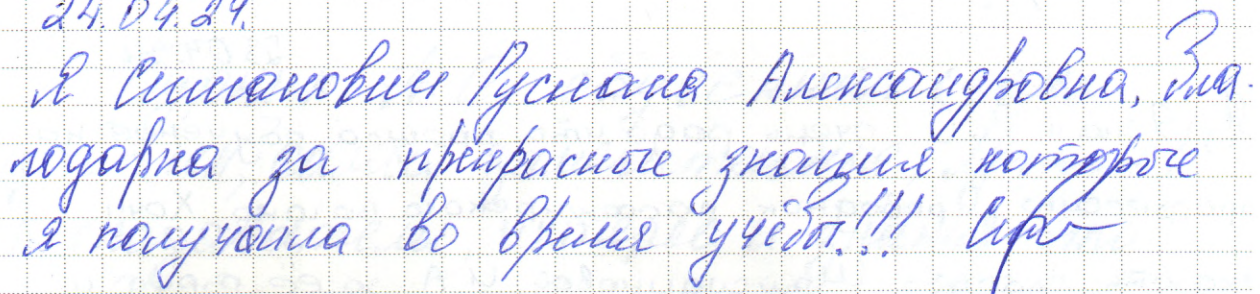 24.04.24.
Я Симанович Руслана Александровна, бла-
годарна за прекрасные знания, которые
я получила во время учёбы!!!